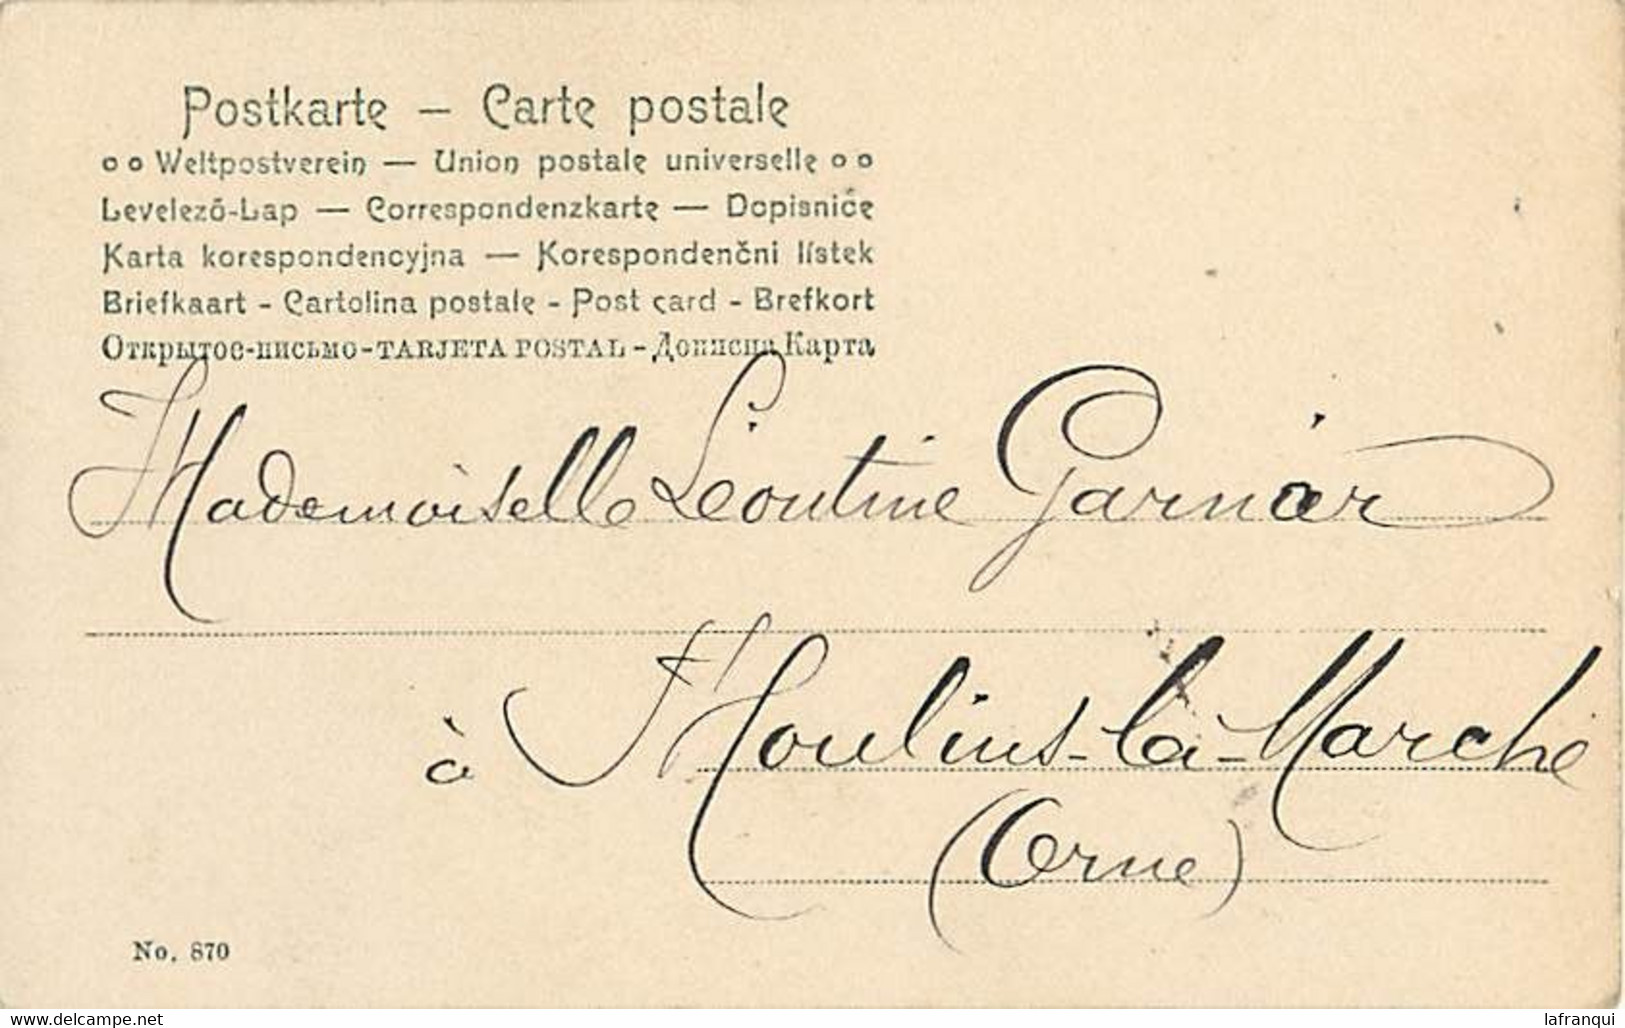 Postkarte – Carte postale
o o Weltpostverein — Union postale universelle o o
Levelező-Lap — Correspondenzkarte — Dopisniće
Karta korespondencyjna — Korespondenční lístek
Briefkaart - Cartolina postale - Post card - Brefkort
Открытое-письмо-TARJETA POSTAL-Дописна Карта
Mademoiselle Léontine Garnier
à Moulins-la-Marche
(Orne)
No. 870
www.delcampe.net
lafranqui